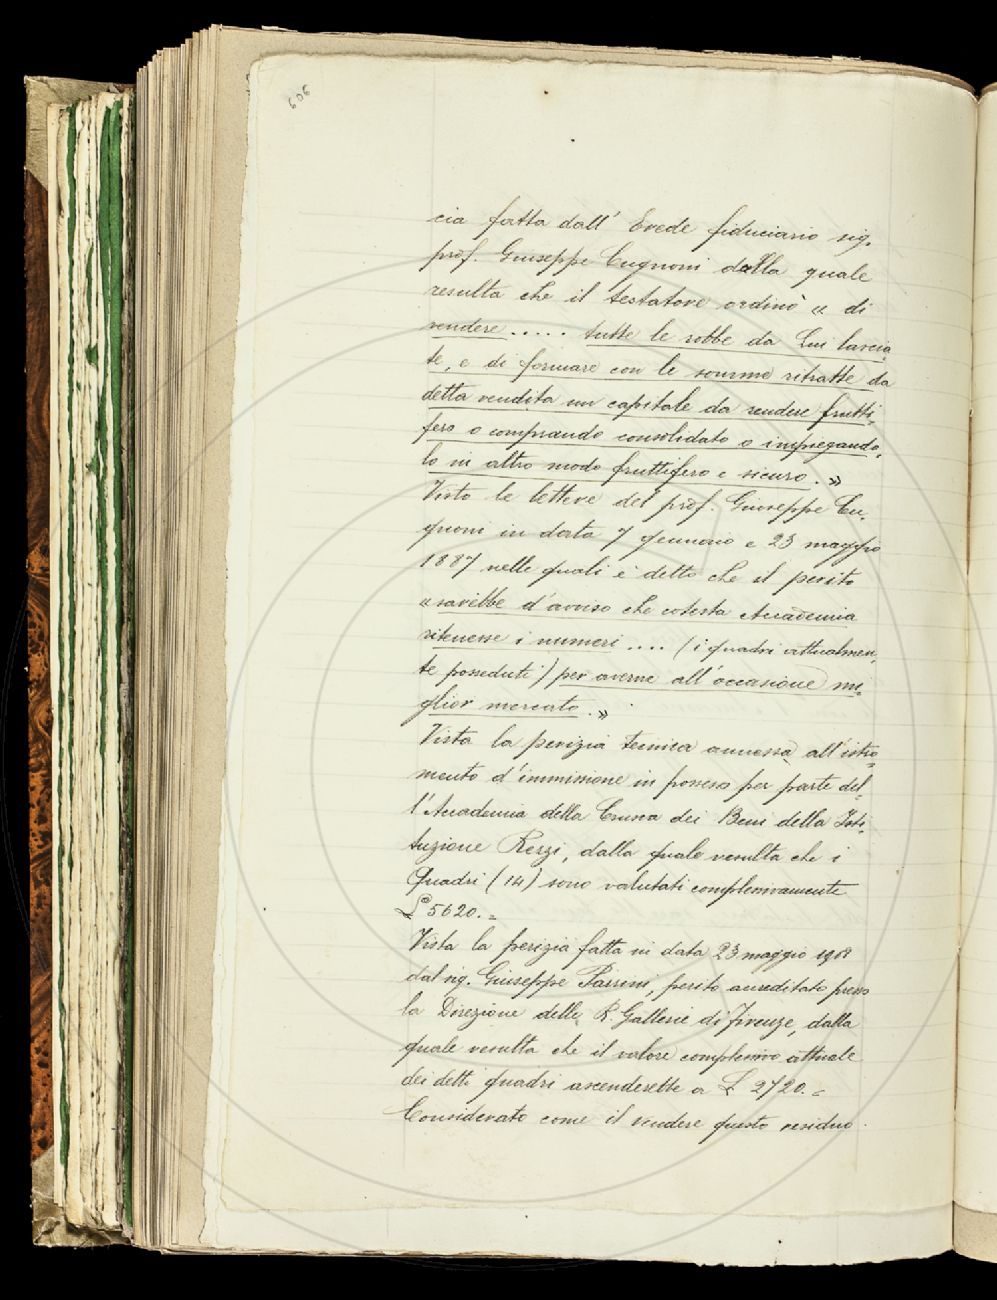 606
cia fatta dall' Erede fiduciario sig.
prof. Giuseppe Cugnoni dalla quale
resulta che il testatore ordinò « di
vendere ..... tutte le robbe da Lui lascia
te, e di formare con le somme ritratte da
detta vendita un capitale da rendere frutti-
fero o comprando consolidato o impiegando-
lo in altro modo fruttifero e sicuro. »
Visto le lettere del prof. Giuseppe Cu-
gnoni in data 7 gennaio e 23 maggio
1887 nelle quali è detto che il perito
« sarebbe d'avviso che cotesta Accademia
ritenesse i numeri .... (i quadri attualmen-
te posseduti) per averne all'occasione mi-
glior mercato. »
Vista la perizia tecnica annessa all'istro-
mento d'immissione in possesso per parte del-
l'Accademia della Crusca dei Beni della Isti-
tuzione Rezzi, dalla quale resulta che i
Quadri (14) sono valutati complessivamente
£ 5620.=
Vista la perizia fatta in data 23 maggio 1908
dal sig. Giuseppe Parrini, perito accreditato presso
la Direzione delle R. Gallerie di Firenze, dalla
quale resulta che il valore complessivo attuale
dei detti quadri ascenderebbe a £ 2720.=
Considerato come il vendere questo residuo